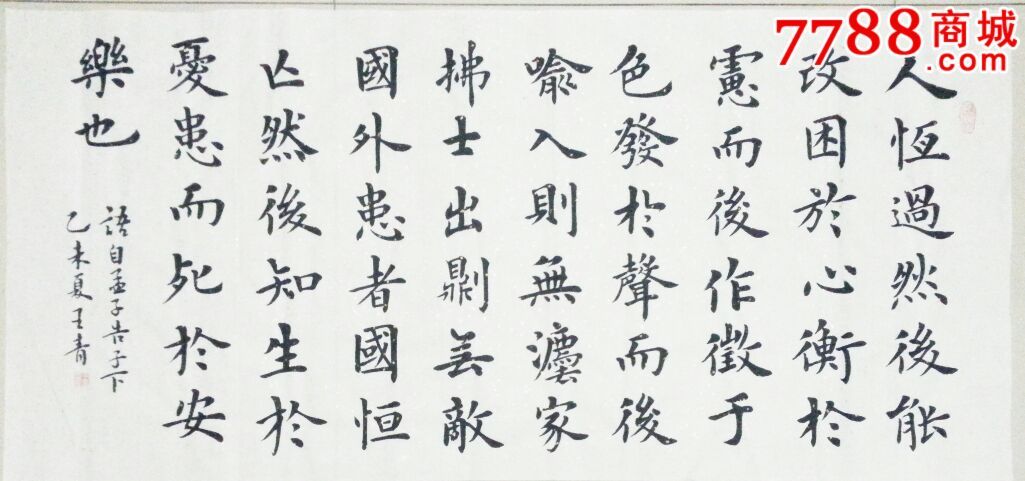 7788商城
.com
人恆過然後能
改困於心衡於
慮而後作徵于
色發於聲而後
喻入則無灋家
拂士出則無敵
國外患者國恒
亡然後知生於
憂患而死於安
樂也
語自孟子告子下
乙未夏王青